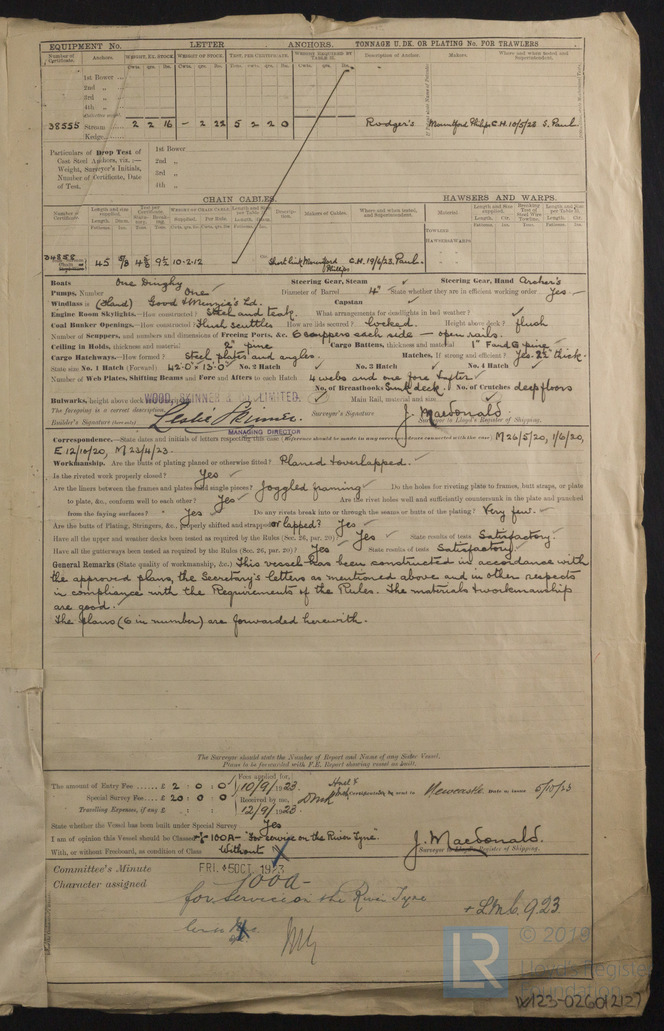 EQUIPMENT No. LETTER ANCHORS. TONNAGE U. DK. OR PLATING No. FOR TRAWLERS
Number of Certificate. Anchors. WEIGHT, EX. STOCK WEIGHT OF STOCK. TEST, PER CERTIFICATE. WEIGHT REQUIRED BY TABLE 31. Description of Anchor. Makers. Where and when tested and Superintendent.
Cwts. qrs. lbs. Cwts. qrs. lbs. Tons. cwts. qrs. lbs. Cwts. qrs. lbs.
1st Bower
2nd „
3rd „
4th „
38555 Stream 2 2 16 - 2 22 5 2 2 0 Rodger's Mountford Philips C.H. 10/5/23 S. Paul.
Kedge
Particulars of Drop Test of Cast Steel Anchors, viz. :— Weight, Surveyor's Initials, Number of Certificate, Date of Test.
1st Bower
2nd „
3rd „
4th „
CHAIN CABLES. HAWSERS AND WARPS.
45 5/8 10.2.12 Short link Mountford Phillips C.H. 19/6/23 Paul.
TOWLINE
HAWSERS & WARPS
Boats One Dinghy Steering Gear, Steam Steering Gear, Hand Archer's
Pumps, Number One Diameter of Barrel 4" State whether they are in efficient working order Yes.
Windlass is (Hand) Good & Menzies Ld. Capstan
Engine Room Skylights.—How constructed? Steel and teak. What arrangements for deadlights in bad weather?
Coal Bunker Openings.—How constructed? Flush scuttles How are lids secured? locked. Height above deck? flush
Number of Scuppers, and numbers and dimensions of Freeing Ports, &c. 6 scuppers each side — open rails.
Ceiling in Holds, thickness and material 2" pine Cargo Battens, thickness and material 1" Pine
Cargo Hatchways.—How formed? Steel plates and angles. Hatches. If strong and efficient? Yes. 2½" thick.
State size No. 1 Hatch (Forward) 42'.0" x 13'.0" No. 2 Hatch No. 3 Hatch No. 4 Hatch
Number of Web Plates, Shifting Beams and Fore and Afters to each Hatch 4 webs and one fore & after
No. of Breasthooks Sunk deck. No. of Crutches deep floors
Bulwarks, height above deck WOOD, SKINNER & CO. LIMITED. Main Rail, material and size
The foregoing is a correct description.
Builder's Signature Leslie Skinner. Surveyor's Signature J. Macdonald.
MANAGING DIRECTOR Surveyor to Lloyd's Register of Shipping.
Correspondence.—State dates and initials of letters respecting this case M 26/5/20, 1/6/20,
E 12/10/20, M 23/4/23.
Workmanship. Are the butts of plating planed or otherwise fitted? Planed & overlapped.
Is the riveted work properly closed? Yes
Are the liners between the frames and plates solid single pieces? Joggled framing Do the holes for riveting plate to frames, butt straps, or plate
to plate, &c., conform well to each other? Yes Are the rivet holes well and sufficiently countersunk in the plate and punched
from the faying surfaces? Yes Do any rivets break into or through the seams or butts of the plating? Very few.
Are the butts of Plating, Stringers, &c., properly shifted and strapped or lapped? Yes
Have all the upper and weather decks been tested as required by the Rules (Sec. 26, par. 20)? Yes State results of tests Satisfactory.
Have all the gutterways been tested as required by the Rules (Sec. 26, par. 20)? Yes State results of tests Satisfactory.
General Remarks (State quality of workmanship, &c.) This vessel has been constructed in accordance with
the approved plans, the Secretary's letters as mentioned above and in other respects
in compliance with the Requirements of the Rules. The materials & workmanship
are good.
The plans (6 in number) are forwarded herewith.
The Surveyor should state the Number of Report and Name of any Sister Vessel.
Plans to be forwarded with F.E. Report showing vessel as built.
The amount of Entry Fee £ 2 : 0 : 0 Fees applied for, 10/9/1923
Special Survey Fee £ 20 : 0 : 0 Received by me, 12/9/1923
Travelling Expenses, if any £ : :
Certificate to be sent to Newcastle Date of issue 6/10/23
State whether the Vessel has been built under Special Survey Yes
I am of opinion this Vessel should be Classed +100A- "For service on the River Tyne"
With, or without Freeboard, as condition of Class Without J. Macdonald.
Surveyor to Lloyd's Register of Shipping.
Committee's Minute FRI. 5 OCT 1923
Character assigned 100A-
for service on the River Tyne
+ L.M.C. 9.23.
© 2019
LR Lloyd's Register Foundation
W123-0260(2127